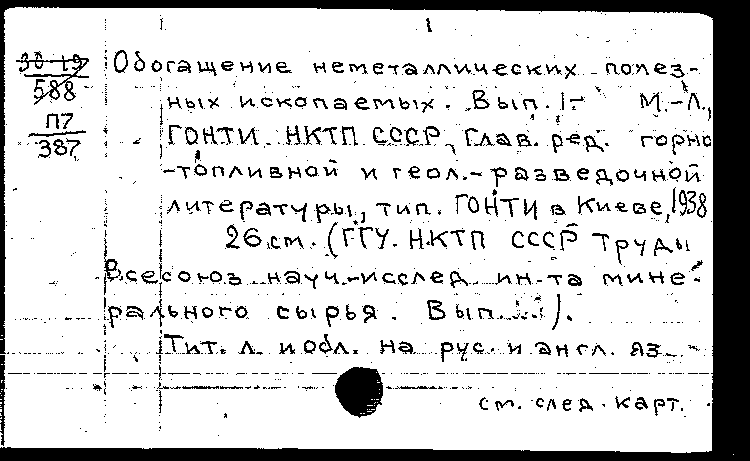 1
30-19
588
П7
387
Обогащение неметаллических полез-
ных ископаемых. Вып. 1- М.-Л.,
ГОНТИ НКТП СССР, Глав. ред. горно
-топливной и геол.-разведочной
литературы, тип. ГОНТИ в Киеве, 1938
26 см. (ГГУ. НКТП СССР Труды
Всесоюз науч.-исслед. ин-та мине-
рального сырья. Вып. ...).
Тит. л. и обл. на рус. и англ. яз.
см. след. карт.